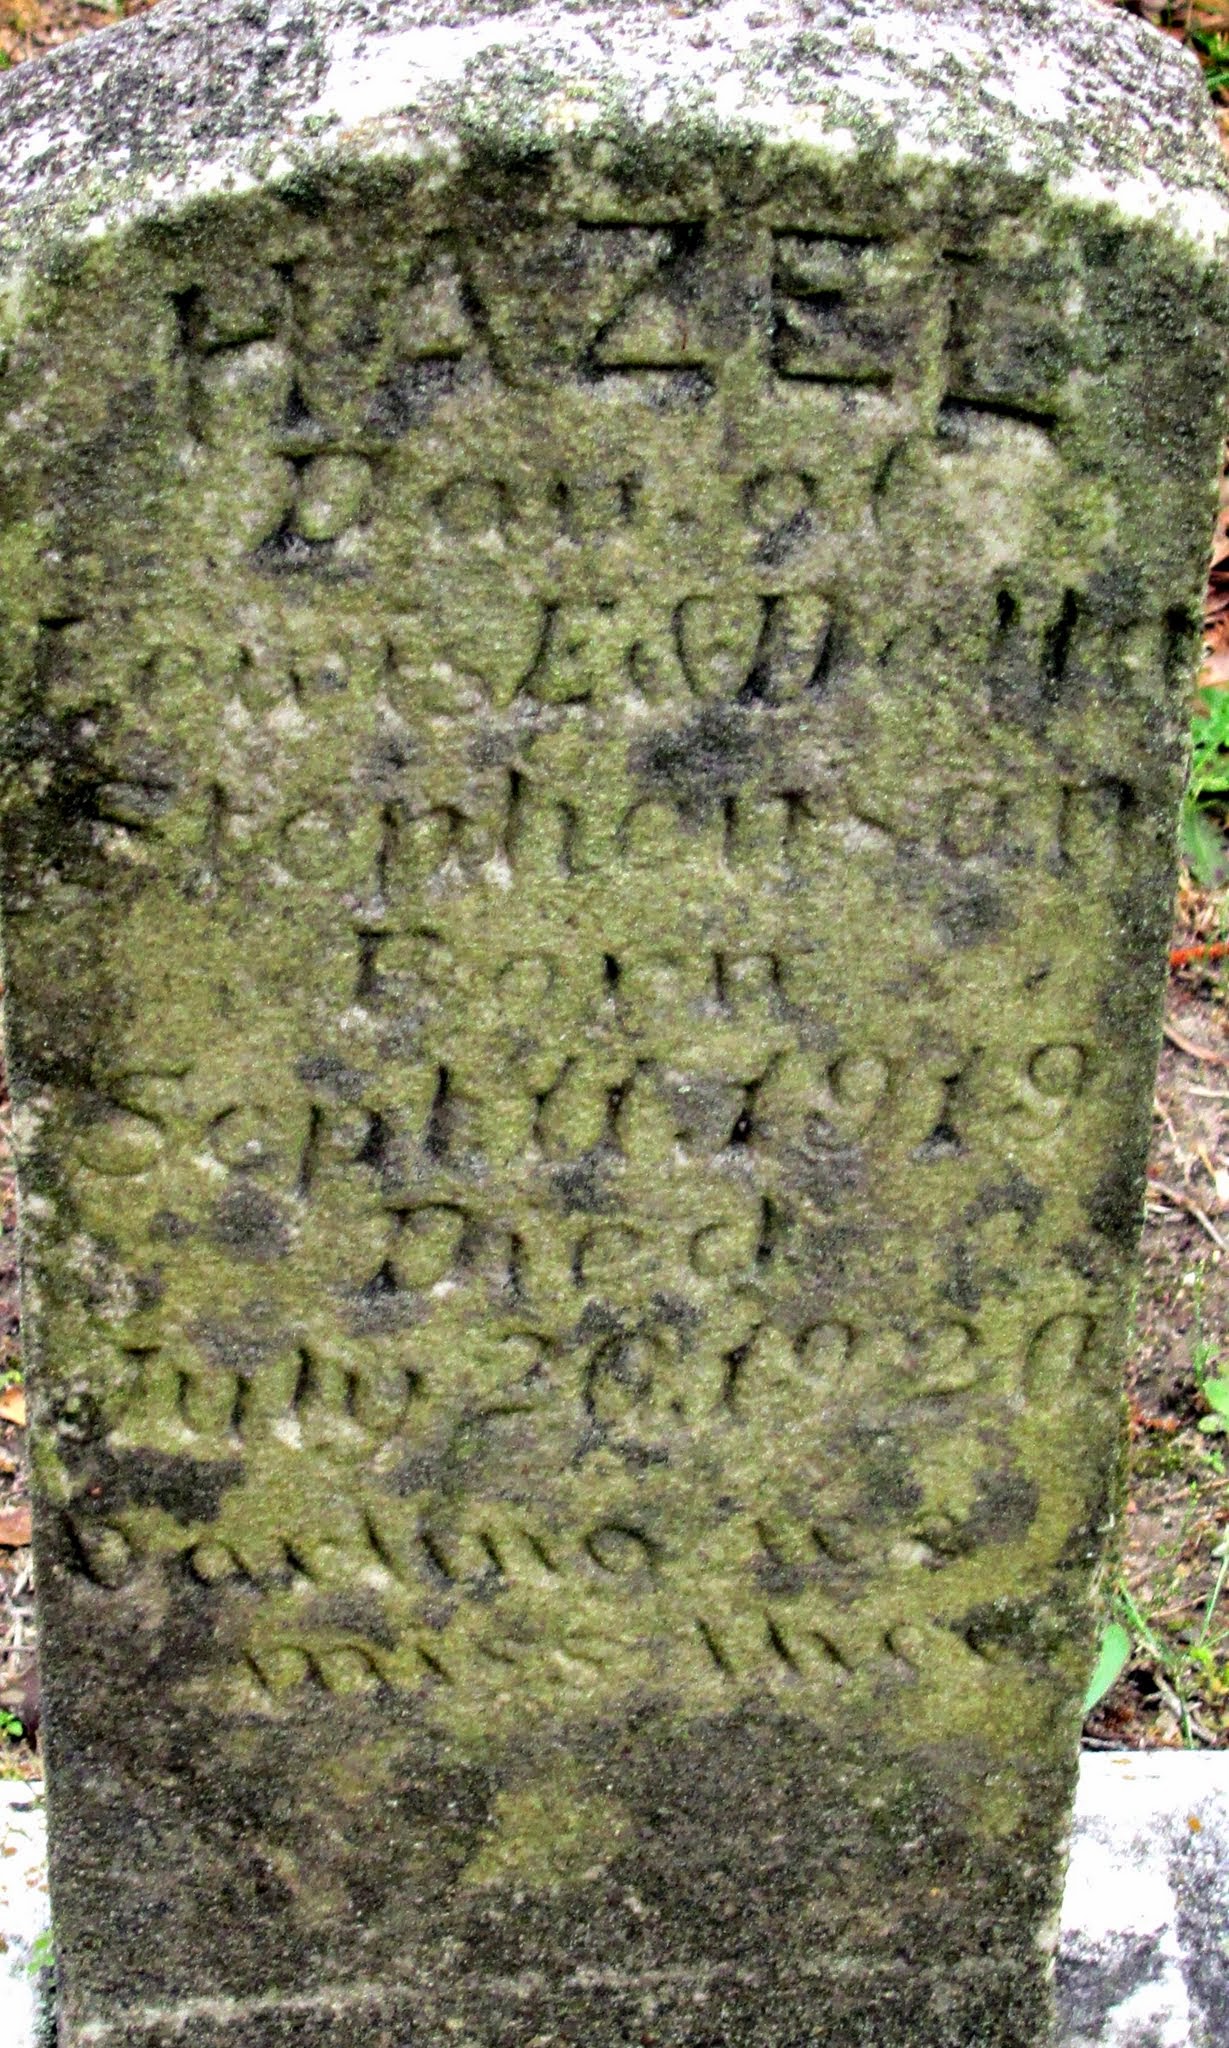 HAZEL
Dau. of
Louis E.
Stephenson
Born
Sept 11.1919
Died
July 1920
Darling we
miss thee